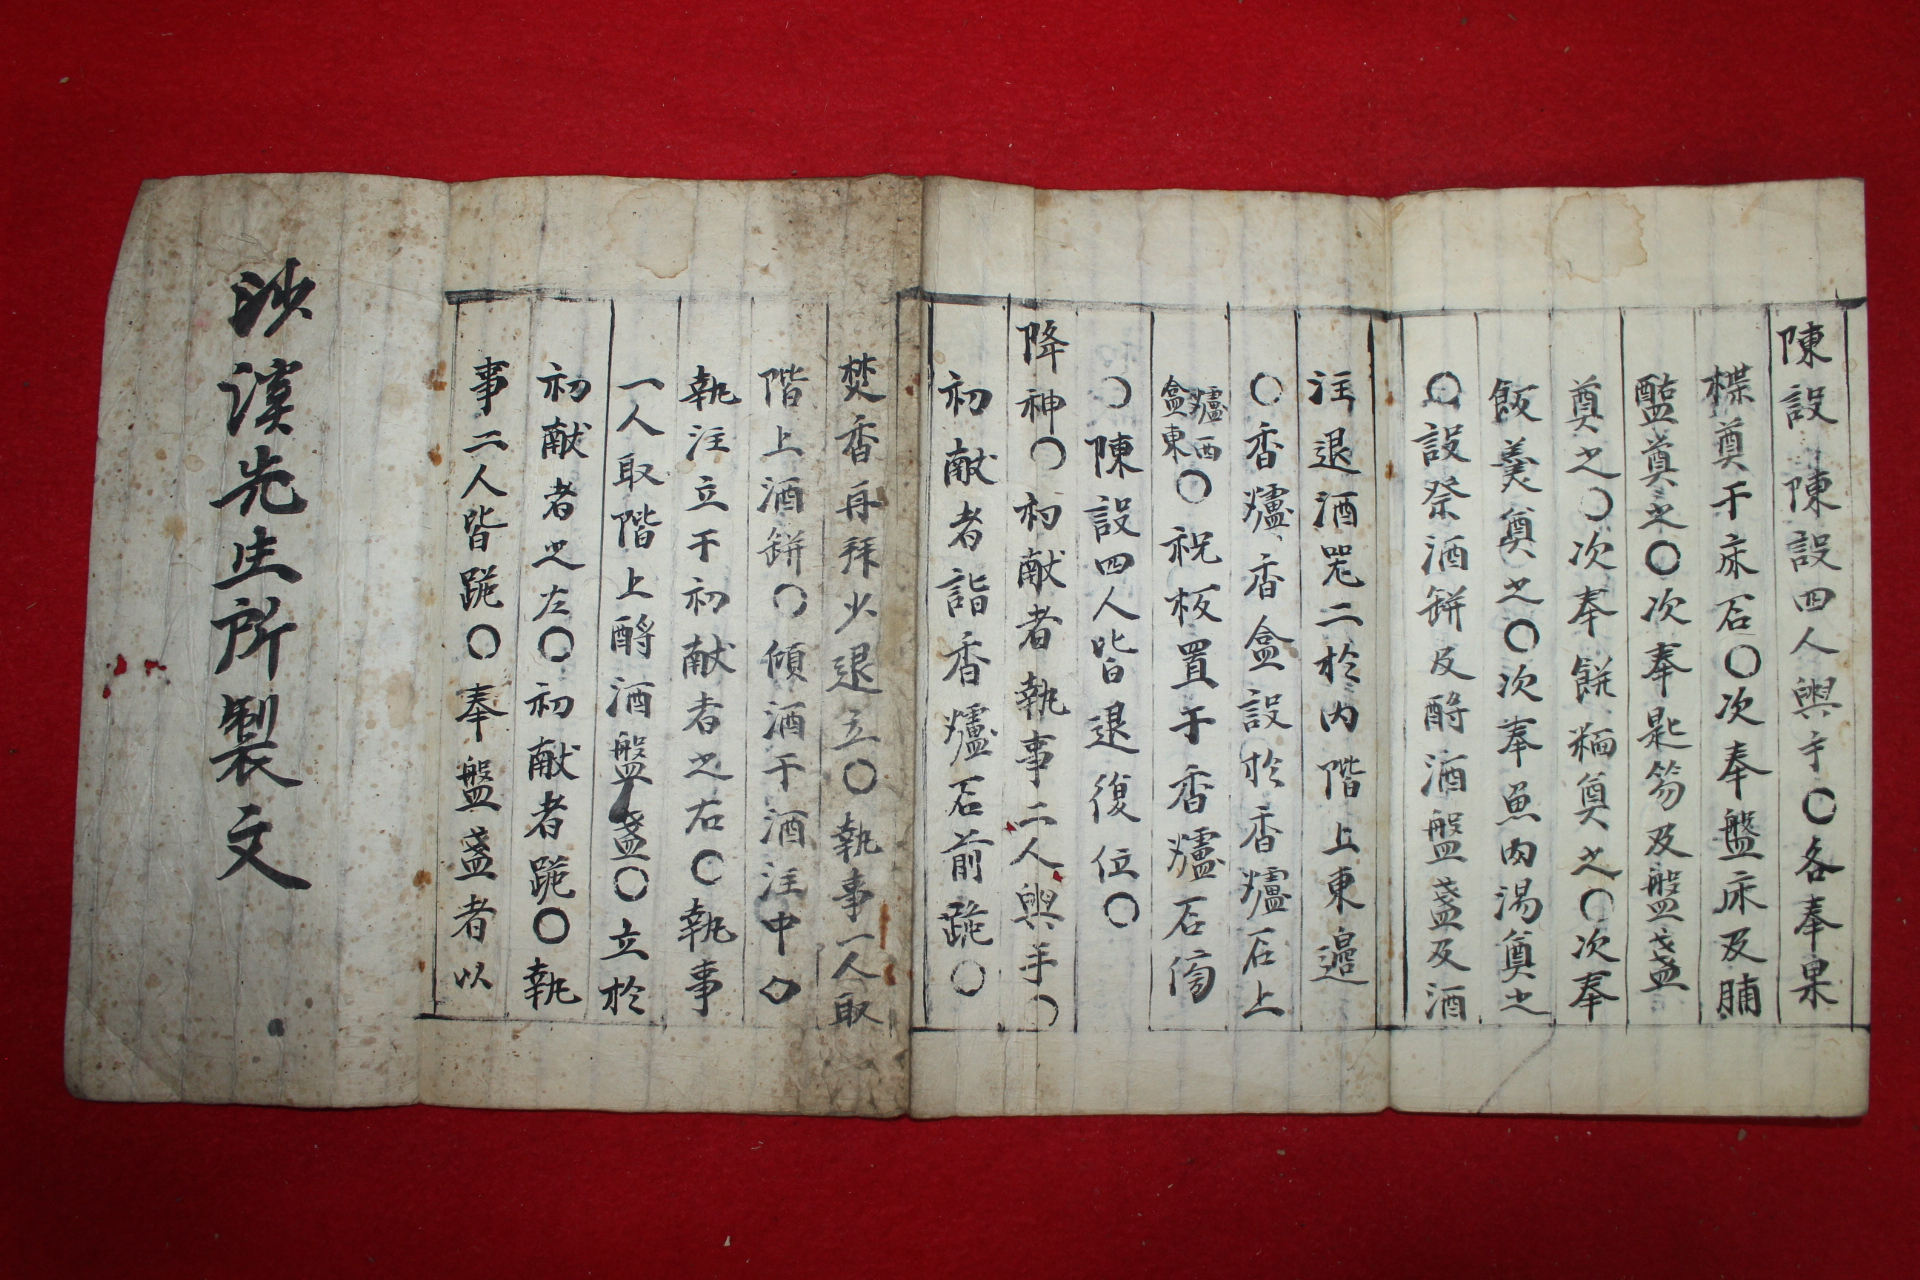 陳設 陳設四人與手○各奉果
楪奠于床石○次奉盤床及脯
醢奠之○次奉匙筯及盤盞
奠之○次奉餠糆奠之○次奉
飯羹奠之○次奉魚肉湯奠之
○設祭酒餠及酹酒盤盞及酒
注退酒器二於內階上東邉
○香爐香盒設於香爐石上
爐西盒東○祝板置于香爐石傍
○陳設四人皆退復位○
降神○初献者執事二人與手○
初献者詣香爐石前跪○
焚香再拜少退立○執事一人取
階上酒缾○傾酒于酒注中○
執注立于初献者之右○執事
一人取階上酹酒盤盞○立於
初献者之左○初献者跪○執
事二人皆跪○奉盤盞者以
沙溪先生所製文